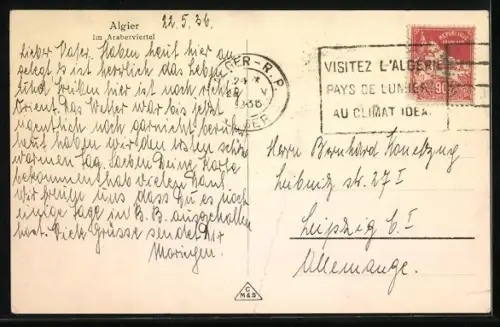 Algier
Im Araberviertel
22.5.36.
Lieber Vater. Haben heut hier an-
gelegt es ist herrlich das Leben
und Treiben hier ist noch recht
Orient. Das Wetter war bis jetzt
namentlich noch garnicht berühmt
heut haben wir den ersten schönen
warmen Tag. Soeben Deine Karte
bekommen hab vielen Dank
wir freuen uns dass Du es noch
einige Tage in B.B. ausgehalten
hast. Viele Grüsse sendet Dir
ALGER-R.P.
24
22 V
1936
ALGER
VISITEZ L'ALGERIE
PAYS DE LUMIERE
AU CLIMAT IDEAL
REPUBLIQUE
90
Herrn Bernhard
Leibnitz str. 27 I
Leipzig C. I
Allemange.
C
M & S